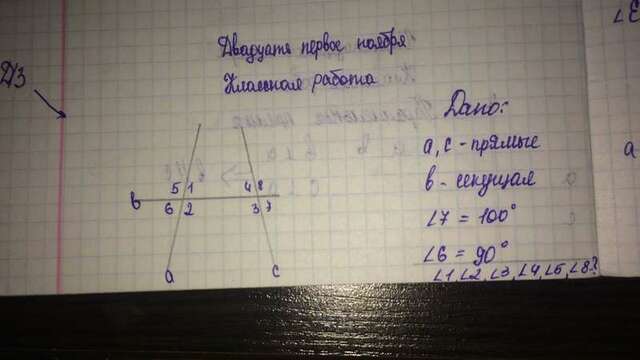 Двадцать первое ноября.
Классная работа
ДЗ
Дано:
a, c - прямые
в - секущая
∠7 = 100°
∠6 = 90°
∠1, ∠2, ∠3, ∠4, ∠5, ∠8?
5 1 4 8
в
6 2 3 7
a c
∠E
a